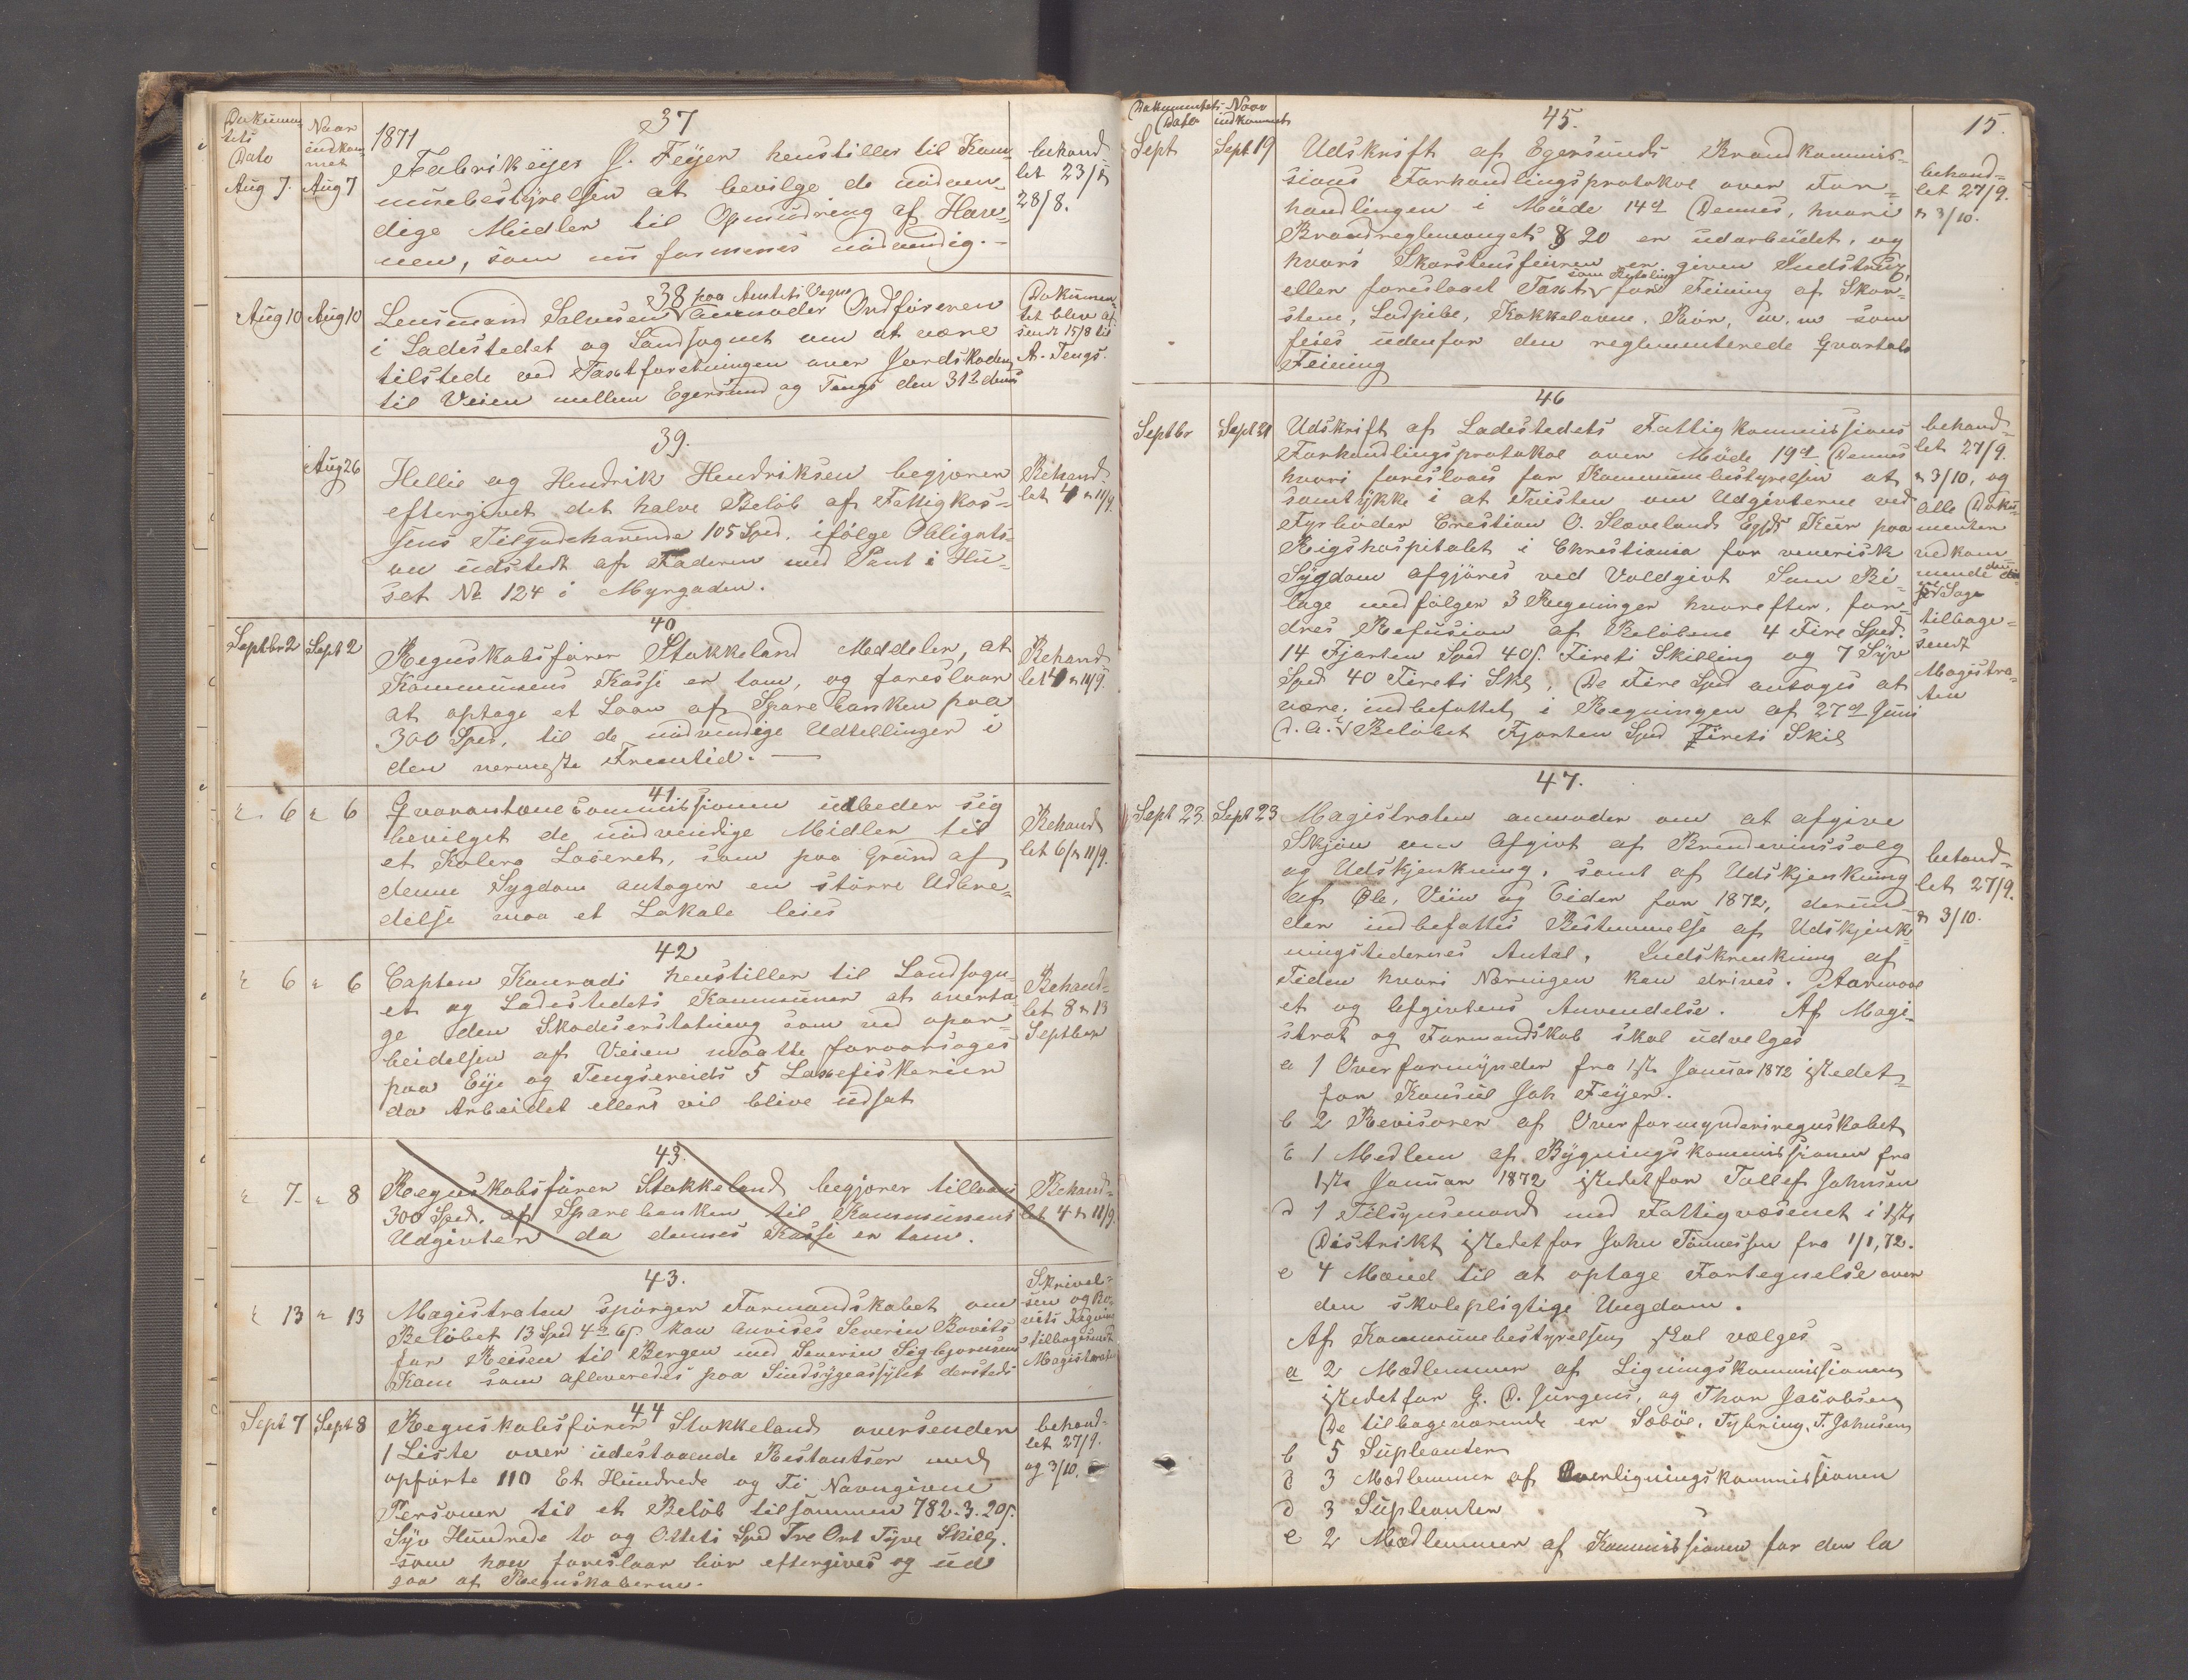 Dokumen-
tets
Dato
Naar
indkom-
met
1871
37
Aug 7. Aug 7
Fabrikeyer J. Feyer henstiller til Kom-
munebestyrelsen at bevilge de nødven-
dige Midler til Opmudring af Hav-
nen, som nu formenes nødvendig.-
behand-
let 23/8
28/8.
38
Aug 10 Aug 10
paa Amtets Vegne
Lensmand Salvesen anmoder Ordføreren
i Ladestedet og Landsognet om at være
tilstede ved Taxtforetningen over Jordskaden
til Veien mellem Egersund og Tengs den 31te dennes
Dokumen-
tet blev af
sendt 15/8 til
A. Tengs.
39.
Aug 26
Hellie og Hendrik Hendriksen begjærer
eftergivet det halve Beløb af Fattigkas-
sens Tilgodehavende 105 Spd. ifølge Obligati-
on udstedt af Faderen med Pant i Hu-
set No 124 i Myrgaden.
Behand-
let 4 & 11/9.
40
Septbr 2 Sept 2
Regnskabsfører Stokkeland Meddeler, at
Kommunens Kasse er tom, og foreslaar
at optage et Laan af Sparebanken paa
300 Spd. til de nødvendige Udtellinger i
den nermeste Fremtid.
Behand
let 4 & 11/9.
41.
" 6 " 6
Qvarantænecommissionen udbeder sig
bevilget de nødvendige Midler til
et Kolera Lazeret, som paa Grund af
denne Sygdom antager en større Udbre-
delse maa et Lokale leies
Behand
let 6/ & 11/9.
42
" 6 " 6
Capten Konradi henstiller til Landsogn-
et og Ladestedets Kommuner at overta-
ge den Skadserstatning som ved opar-
beidelsen af Veien maatte foraarsages
paa Eye og Tengsereids 5 Laxefiskerier
da Arbeidet ellers vil blive udsat
Behand-
let 8 & 13
Septber
43.
" 7- " 8
Regnskabsfører Stokkeland begjærer tillaans
300 Spd. af Sparebanken til Kommunens
Udgivter da dennes Kasse er tom.
Behand-
let 4 & 11/9.
43.
" 13 " 13
Magistraten spørger Formandskabet om
Beløbet 13 Spd 4 & 6s. kan anvises Severin Bovits
for Reisen til Bergen med Severin Sigbjørnsens
Kone som afleveredes paa Sindsygeassylet dersteds
Skrivel-
sen og Bo-
vits Regning
tilbagesendt
Magistraten
44
Sept 7 Sept 8
Regnskabsfører Stokkeland oversender
1 Liste over udestaaende Restantser med
opførte 110 Et Hundrede og Ti Navngivne
Personer til et Beløb tilsammen 782-3-20s.
Syv Hundrede to og Otteti Spd Tre Ort Tyve Skillg.
som han foreslaar bør eftergives og ud
gaa af Regnskaberne.
behand-
let 27/9.
og 3/10.
Dokumentets
Dato
Naar
indkommet
15.
45.
Sept Sept 19
Udskrift af Egersunds Brandkommis-
sions Forhandlingsprotokol over For-
handlingen i Møde 14de Dennes, hvori
Brandreglemangets § 20 er udarbeidet, og
hvori Skorstensfeieren er given Indstrux,
som Betaling
eller foreslaaet Taxt for Feining af Skor-
sten, Ladpibe, Kakkelovne, Rør, m.m. som
feies udenfor den reglementerede Qvartals
Feining
behand-
let 27/9.
& 3/10.
46
Septbr Sept 21
Udskrift af Ladestedets Fattigkommissions
Forhandlingsprotokol over Møde 19de Dennes
hvori foreslaaes for Kommunebestyrelsen at
samtykke i at Tvisten om Udgivterne ved
Fyrbøder Crestian O. Slæveland Egsds Kur paa
Rigshospitalet i Christiania for venerisk
Sygdom afgjøres ved Voldgivt Som Bi-
lage medfølger 3 Regninger hvorefter, for-
dres Refusion af Beløbene 4 Fire Spd.
14 Fjorten Spd 40s. Fireti Skilling og 7 Syv
Spd 40 Fireti Skl. De Fire Spd antages at
være indbefattet i Regningen af 27de Juni
d. A. Beløbet Fjorten Spd Fireti Skil
behand-
let 27/9.
& 3/10, og
alle Doku-
menter
vedkom
mende den-
ne Sag
tilbage-
sendt
Magistra-
ten
47.
Sept 23. Sept 23
Magistraten anmoder om at afgive
Skjøn om Afgivt af Brændevinssalg
og Udskjenkning, samt af Udskjenkning
af Øle, Viin og Cider for 1872, derun-
der indbefattes Bestemmelse af Udskjenk-
ningstedernes Antal, Indskrenkning af
Tiden hvori Næringen kan drives.
et og Afgivtens Anvendelse. Af Magi-
strat og Formandskab skal udvelges
a 1 Overformynder fra 1ste Januar 1872 istedet-
for Konsul Joh Feyer.
b 2 Revisorer af Overformynderiregnskabet
c 1 Medlem af Bygningskommissionen fra
1ste Januar 1872 istedetfor Tollef Johnsen
d 1 Tilsynsmand med Fattigvæsenet i 1ste
Distrikt istedetfor John Tønnessen fra 1/1, 72.
e 4 Mænd til at optage Fortegnelse over
den skolepligtige Ungdom.
Af Kommunebestyrelsen skal vælges
a 2 Medlemmer af Ligningskommissionen
istedetfor G. D. Jürgens, og Thor Jacobsen
De tilbageværende er Sæbøe, Tybring, T. Johnsen
b 5 Supleanter
c 3 Medlemmer af Overligningskommissionen
d 3 Supleanter
e 2 Medlemmer af Kommissionen for den la
behand-
let 27/9.
& 3/10.